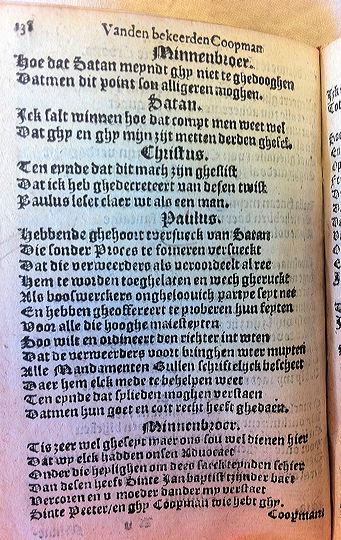 138 Vanden bekeerden Coopman
Minnenbroer.
Hoe dat Satan meyndt ghy niet te ghedooghen
Datmen dit point sou alligeren moghen.
Satan.
Ick salt winnen hoe dat compt men weet wel
Dat ghy en ghy mijn zijt metten derden ghesel.
Christus.
Ten eynde dat dit mach zijn gheslist
Dat ick heb ghedecreteert van desen twist
Paulus leset claer wt als een man.
Paulus.
Hebbende ghehoort tversueck van Satan
Die sonder Proces te formeren versueckt
Dat die verweerders als veroordeelt al ree
Hem te worden toeghelaten en wech gheruckt
Als booswerckers ongheloovich partye sept nee
En hebben gheoffereert te proberen hun septen
Voor alle die hooghe maiesteyten
Soo wilt en ordineert den richter int wten
Dat de verweerders voort bringhen wter muyten
Alle Mandamenten Bullen schriftelyck bescheet
Daer hem elck mede te behelpen weet
Ten eynde dat tplieden moghen verstaen
Datmen hun goet en cort recht heeft ghedaen.
Minnenbroer.
Tis zeer wel gheseyt maer ons sou wel dienen hier
Dat wy elck hadden onsen Advocaet
Onder die heylighen om dees saeck teynden schier
Van desen heeft Sinte Jan baptist tzijnder baet
Vercoren en u moeder dander my verstaet
Sinte Peeter/ en ghy Coopman wie hebt ghy.
Coopman